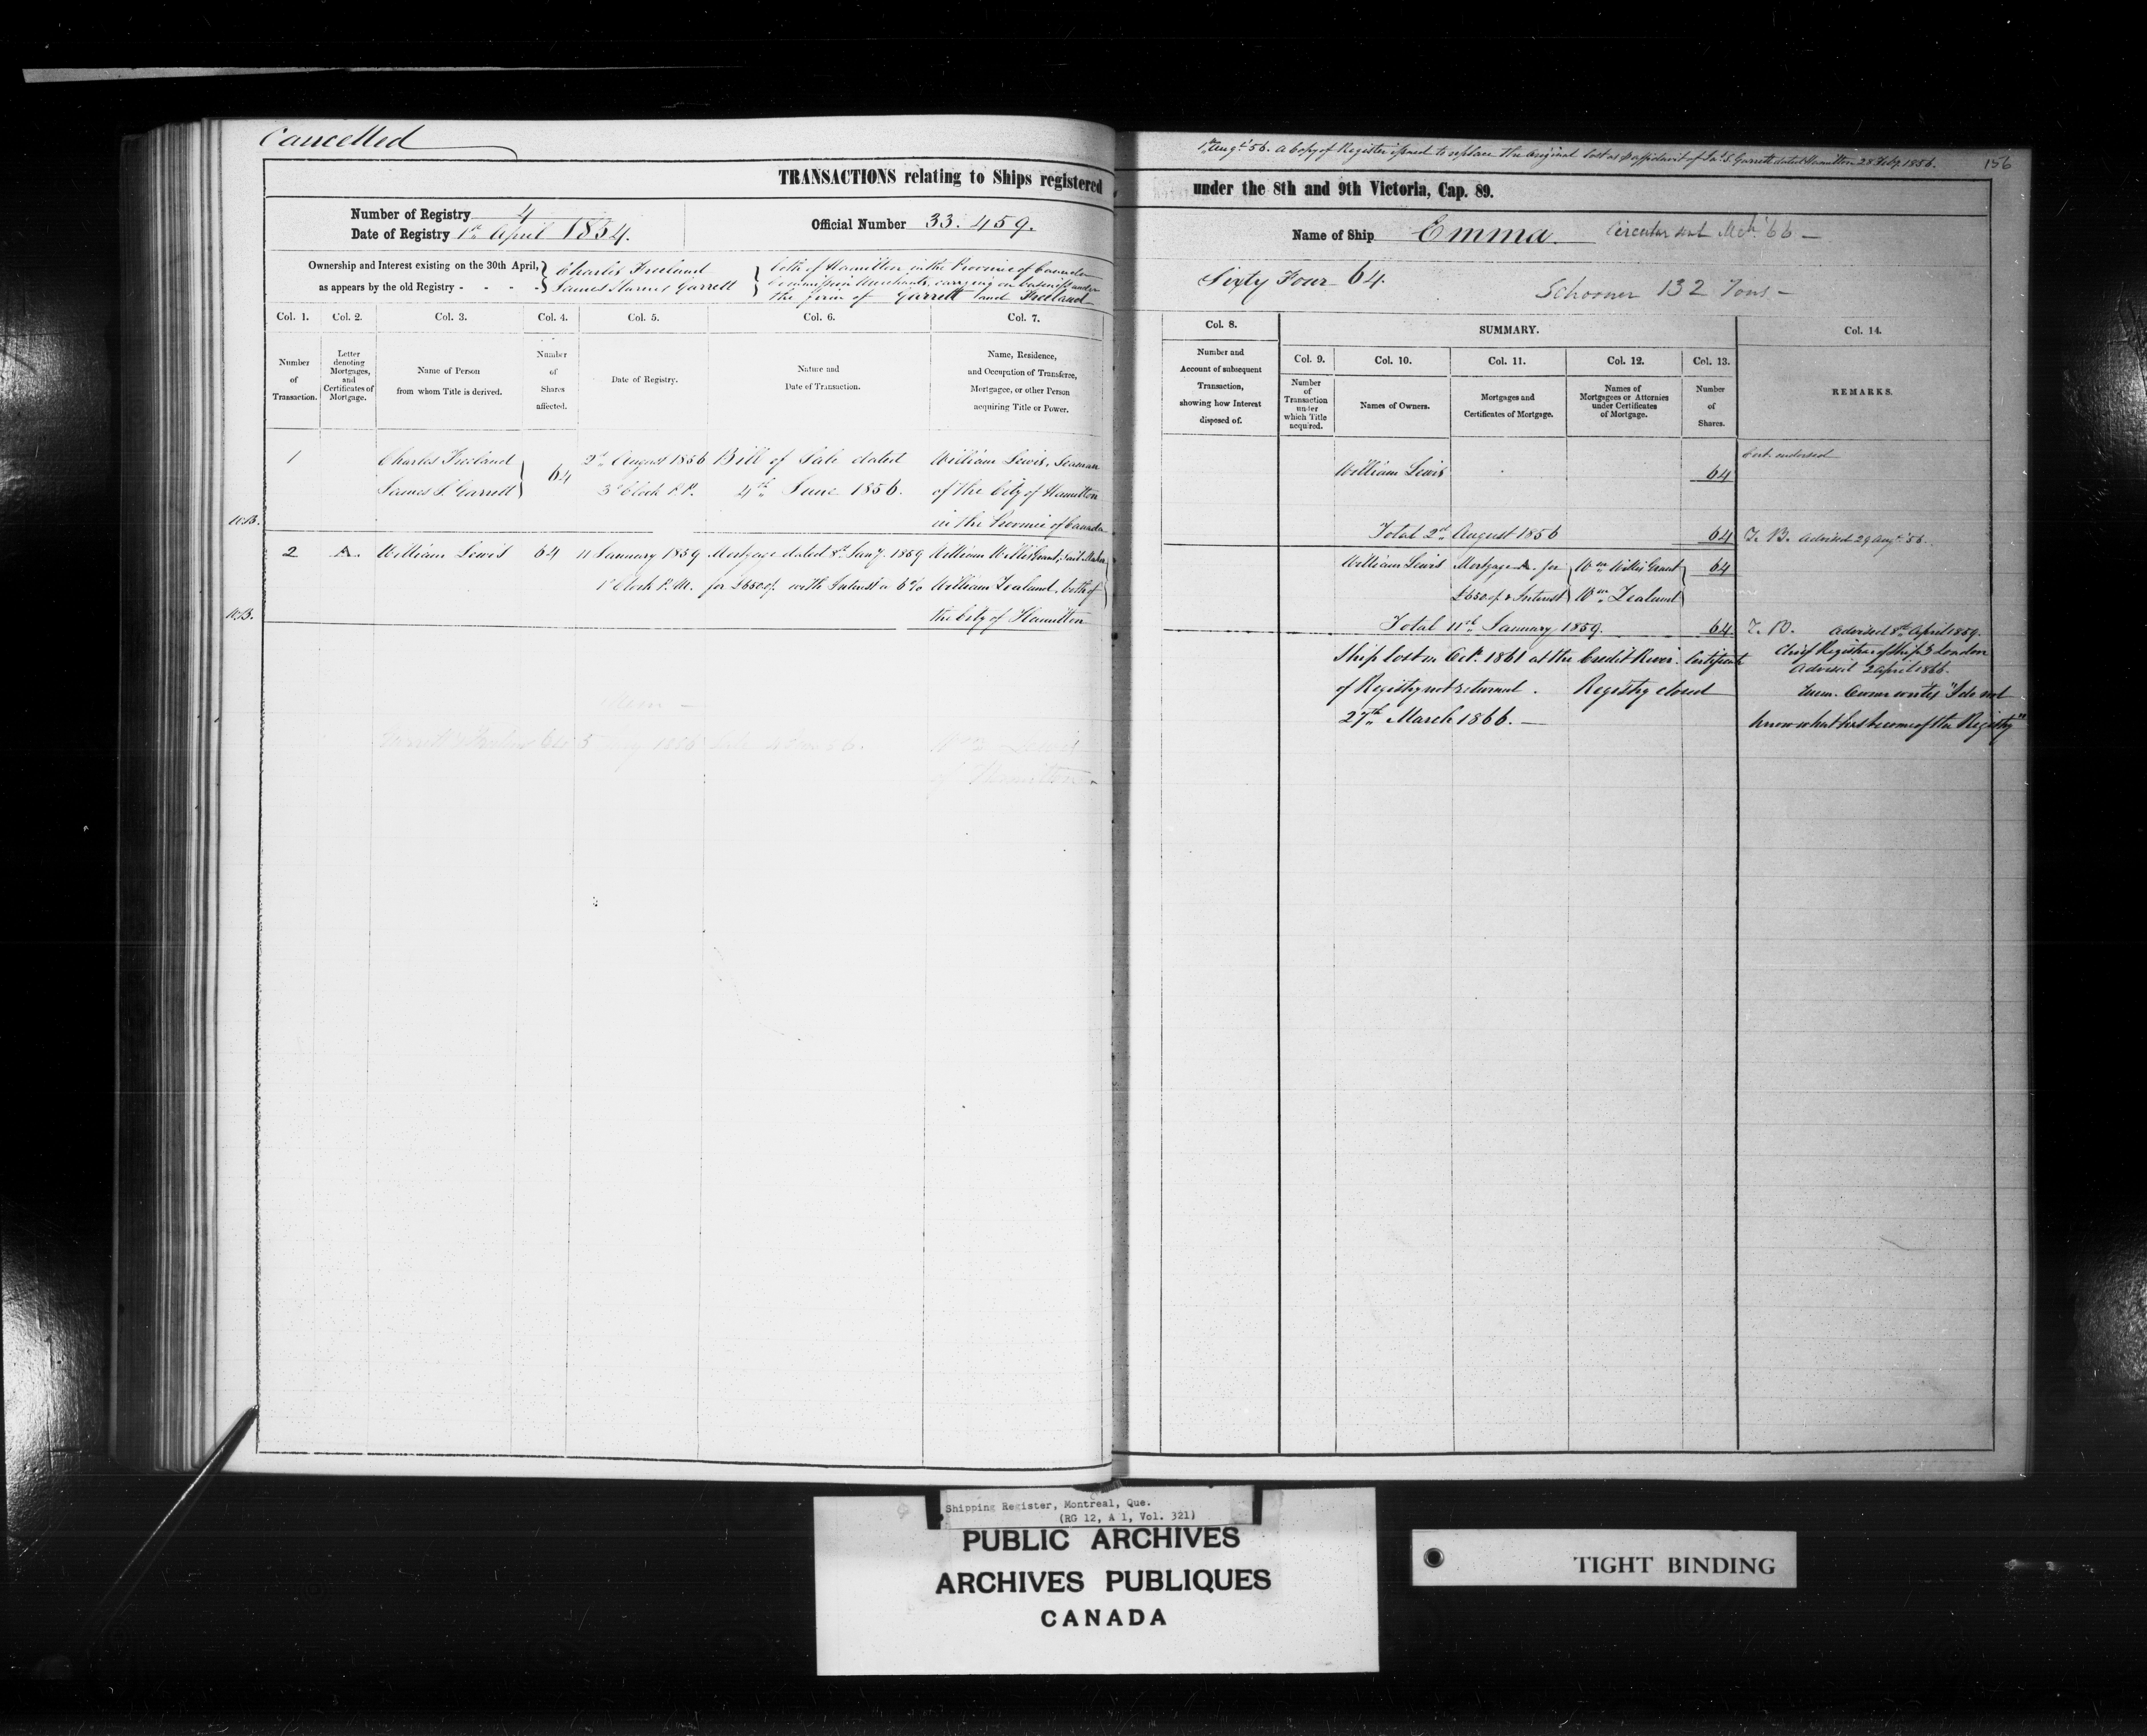 Cancelled
1st Augt '56. A Copy of Register issued to replace the Original lost as p affidavit of Jas. S. Garrett dated Hamilton 28 Feby. 1856.
156
TRANSACTIONS relating to Ships registered under the 8th and 9th Victoria, Cap. 89.
Number of Registry 4
Date of Registry 1st April 1854.
Official Number 33.459.
Name of Ship Emma. Circular sent Mch '66 —
Ownership and Interest existing on the 30th April,
as appears by the old Registry - - - -
Charles Freeland
James Garrett
both of Hamilton in the Province of Canada
Commission Merchants, carrying on business under
the firm of Garrett and Freeland
Sixty Four 64.
Schooner 132 Tons —
Col. 1.
Number
of
Transaction.
Col. 2.
Letter
denoting
Mortgages,
and
Certificates of
Mortgage.
Col. 3.
Name of Person
from whom Title is derived.
Col. 4.
Number
of
Shares
affected.
Col. 5.
Date of Registry.
Col. 6.
Nature and
Date of Transaction.
Col. 7.
Name, Residence,
and Occupation of Transferee,
Mortgagee, or other Person
acquiring Title or Power.
Col. 8.
Number and
Account of subsequent
Transaction,
showing how Interest
disposed of.
SUMMARY.
Col. 9.
Number
of
Transaction
under
which Title
acquired.
Col. 10.
Names of Owners.
Col. 11.
Mortgages and
Certificates of Mortgage.
Col. 12.
Names of
Mortgagees or Attornies
under Certificates
of Mortgage.
Col. 13.
Number
of
Shares.
Col. 14.
REMARKS.
1
Charles Freeland
James S. Garrett
64
2nd August 1856
3 o'clock P.M.
Bill of Sale dated
4th June 1856.
William Lewis, Seaman
of the City of Hamilton
in the Province of Canada
William Lewis
64
Cert. endorsed
Total 2nd August 1856
64
T. B. Advised 29 Augt '56.
2
A.
William Lewis
64
11 January 1859
1 o'Clock P.M.
Mortgage dated 8th Jany. 1859
for £650.0/. with Interest a 6%
William Willis Grant, Sail Maker
William Zealand, both of
the City of Hamilton
William Lewis
Mortgage A. for
£650.0/. & Interest
Wm. Willis Grant
Wm. Zealand
64
Total 11th January 1859.
64.
T. B. Advised 8th April 1859.
Ship lost in Octr. 1861 at the Credit River. Certificate
of Registry not returned. Registry closed
27th March 1866. —
Chief Registrar of Ships London
Advised 2 April 1866.
Mem. Owner writes "I do not
know what has become of the Registry"
Mem —
Wm. Lewis
of Hamilton
Shipping Register, Montreal, Que.
(RG 12, A 1, Vol. 321)
PUBLIC ARCHIVES
ARCHIVES PUBLIQUES
CANADA
TIGHT BINDING